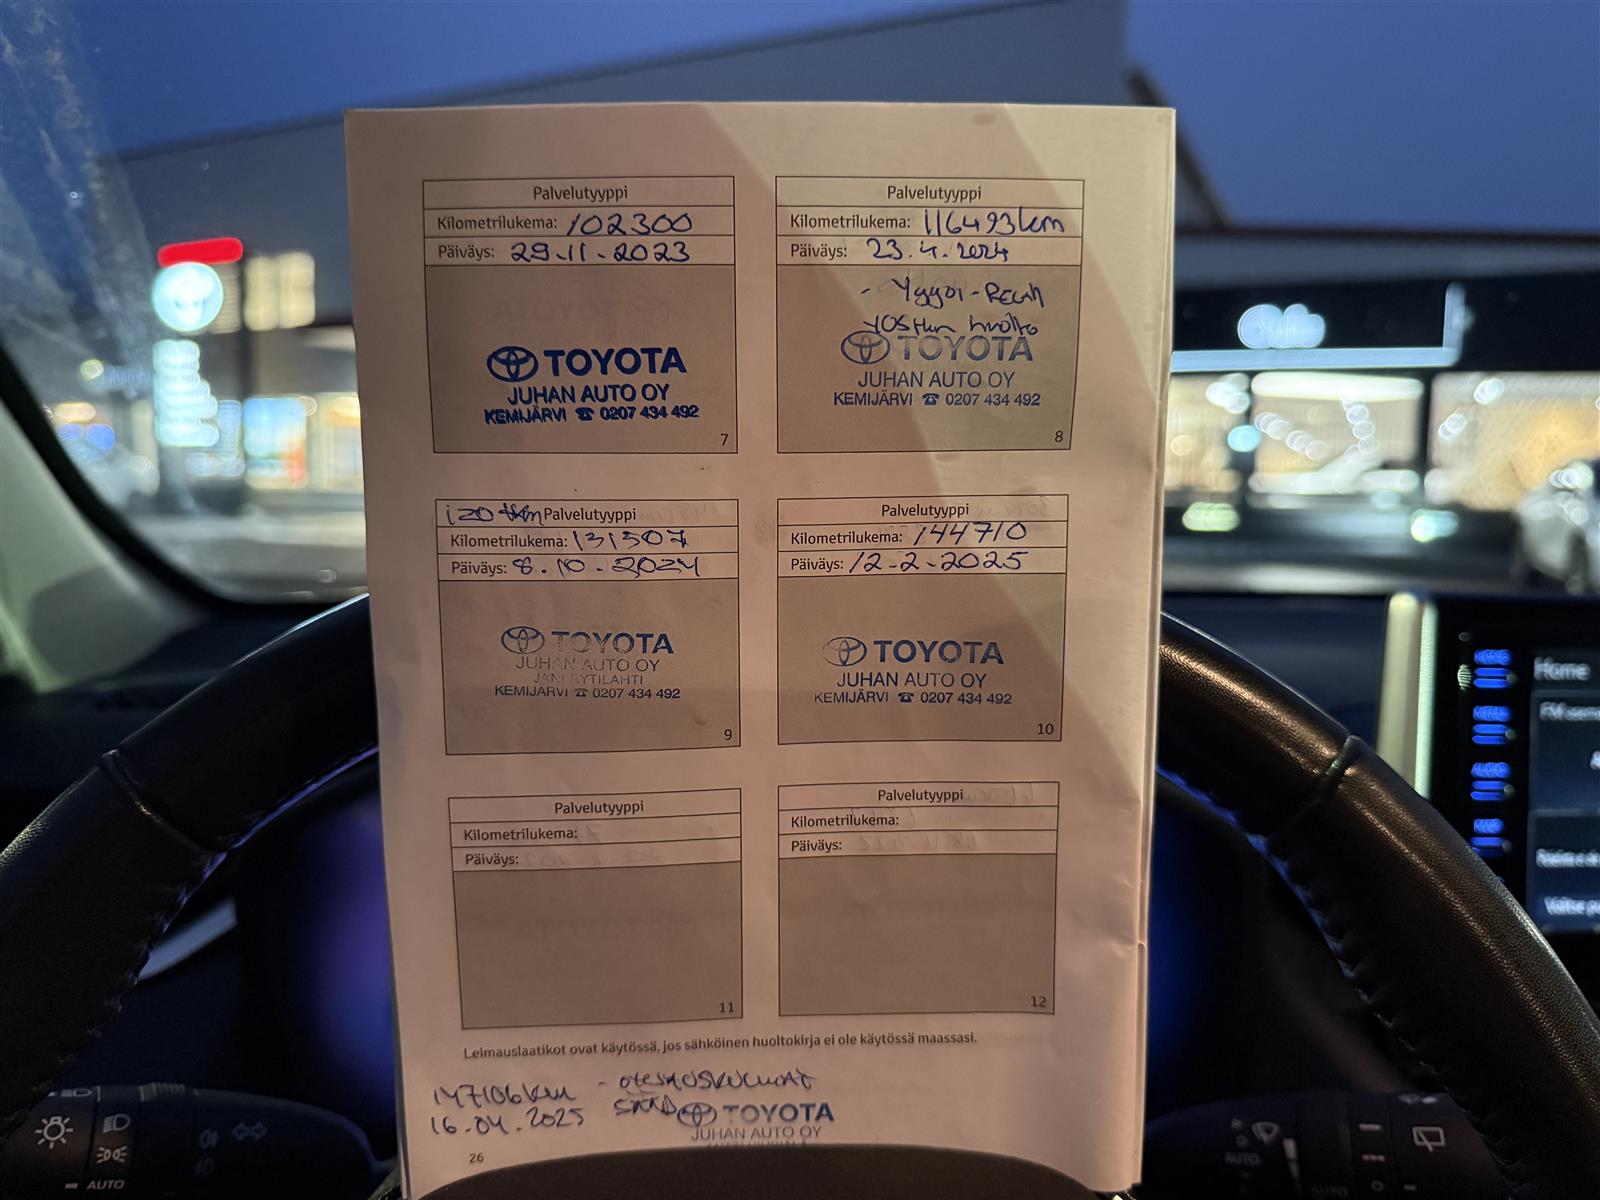 Palvelutyyppi
Kilometrilukema: 102300
Päiväys: 29.11.2023
TOYOTA
JUHAN AUTO OY
KEMIJÄRVI ☎ 0207 434 492
7
Palvelutyyppi
Kilometrilukema: 116493km
Päiväys: 23.4.2024
huolto
TOYOTA
JUHAN AUTO OY
KEMIJÄRVI ☎ 0207 434 492
8
120 tkm Palvelutyyppi
Kilometrilukema: 131507
Päiväys: 8.10.2024
TOYOTA
JUHAN AUTO OY
JANI RYTILAHTI
KEMIJÄRVI ☎ 0207 434 492
9
Palvelutyyppi
Kilometrilukema: 144710
Päiväys: 12-2-2025
TOYOTA
JUHAN AUTO OY
KEMIJÄRVI ☎ 0207 434 492
10
Palvelutyyppi
Kilometrilukema:
Päiväys:
11
Palvelutyyppi
Kilometrilukema:
Päiväys:
12
Leimauslaatikot ovat käytössä, jos sähköinen huoltokirja ei ole käytössä maassasi.
147106km -
16.04.2025
TOYOTA
JUHAN AUTO OY
26
Home
AUTO
AUTO